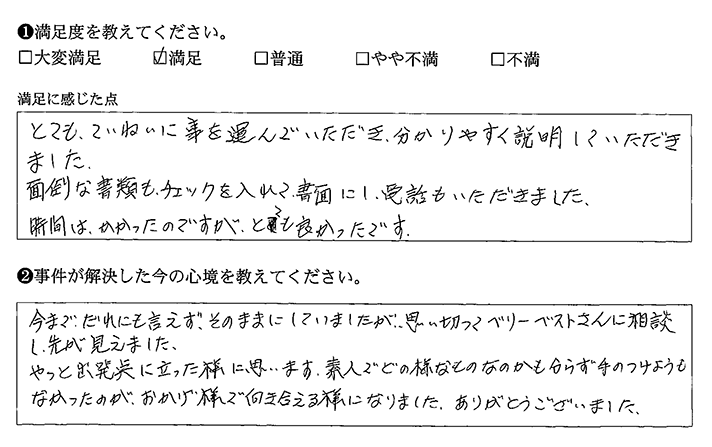 ❶満足度を教えてください。
□大変満足 ☑満足 □普通 □やや不満 □不満
満足に感じた点
とても、ていねいに事を運んでいただき、分かりやすく説明していただき
ました。
面倒な書類も、チェックを入れて、書面にし、電話もいただきました、
時間は、かかったのですが、とても良かったです。
❷事件が解決した今の心境を教えてください。
今まで、だれにも言えず、そのままにしていましたが、思い切ってベリーベストさんに相談
し、先が見えました、
やっと出発点に立った様に思います。素人でどの様なものなのかも分らず手のつけようも
なかったのが、おかげ様で向き合える様になりました。ありがとうございました、